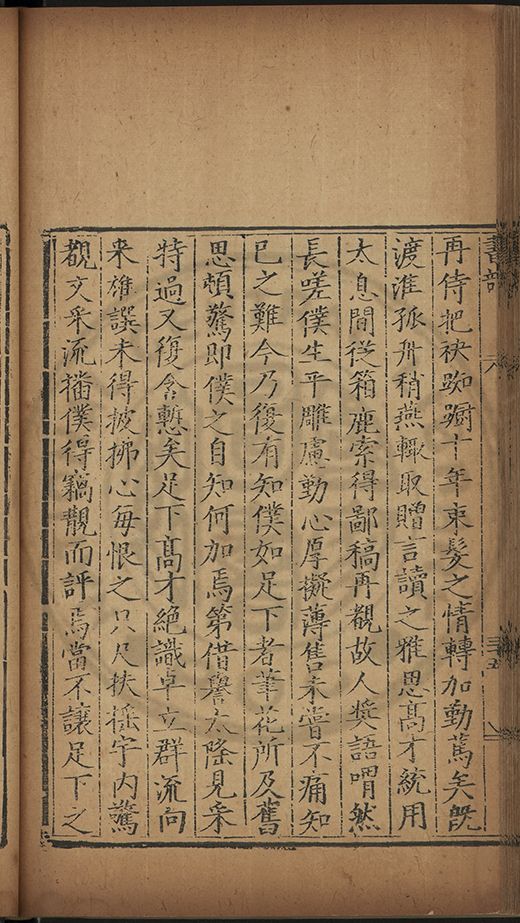 書部
六
三五
再侍把袂踟躕十年束髮之情轉加動篤矣旣
渡淮孤舟稍燕輙取贈言讀之雅思髙才統用
太息間從箱鹿索得鄙稿再觀故人奬語喟然
長嗟僕生平雕慮動心厚擬薄售未嘗不痛知
已之難今乃復有知僕如足下者筆花所及舊
思頓驚即僕之自知何加焉第借譽太隆見采
特過又復含慙矣足下髙才絶識卓立群流向
来雄譔未得披拂心每恨之只尺扶摇宇内驚
覩文采流播僕得竊觀而評焉當不讓足下之